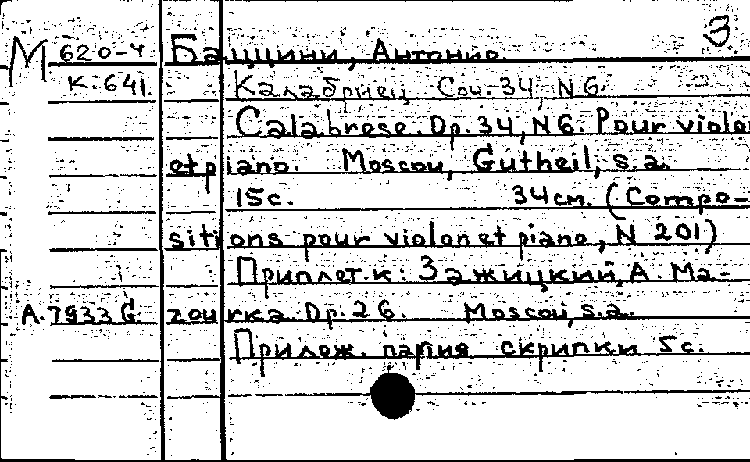 3
М 620-4 Баццини, Антонио.
К.641. Калабриец Соч. 34, N 6.
Calabrese. Op. 34, N 6. Pour violon
et piano. Moscou, Gutheil, s.a.
15с. 34см. (Compo-
sitions pour violon et piano, N 201)
Приплет. к: Зажицкий, А. Ма-
А.7933 G. zourka Op. 26. Moscou, s.a.
Прилож. партия скрипки 5с.